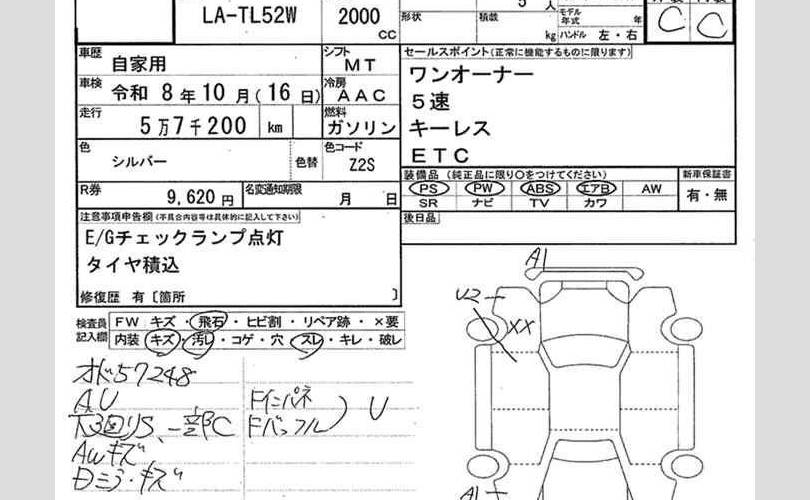 LA-TL52W 2000 cc
5 人
形状 積載 kg
モデル年式 年
ハンドル 左・右
C C
車歴 自家用
シフト MT
車検 令和 8 年 10 月( 16 日)
冷房 AAC
走行 5万7千200 km
燃料 ガソリン
色 シルバー 色替
色コード Z2S
R券 9,620 円
名変通知期限 月 日
セールスポイント(正常に機能するものに限ります)
ワンオーナー
5速
キーレス
ETC
装備品 (純正品に限り○をつけてください)
PS PW ABS エアB AW
SR ナビ TV カワ
新車保証書
有・無
後日品
注意事項申告欄 (不具合内容等は具体的に記入して下さい)
E/Gチェックランプ点灯
タイヤ積込
修復歴 有〔箇所 〕
検査員記入欄
FW キズ・飛石・ヒビ割・リペア跡・×要
内装 キズ・汚れ・コゲ・穴・スレ・キレ・破レ
オド57248
AU
下3回りS、一部C
AWキズ
Fインパネ
Fバッフル
U
A1
U2
XX
A1